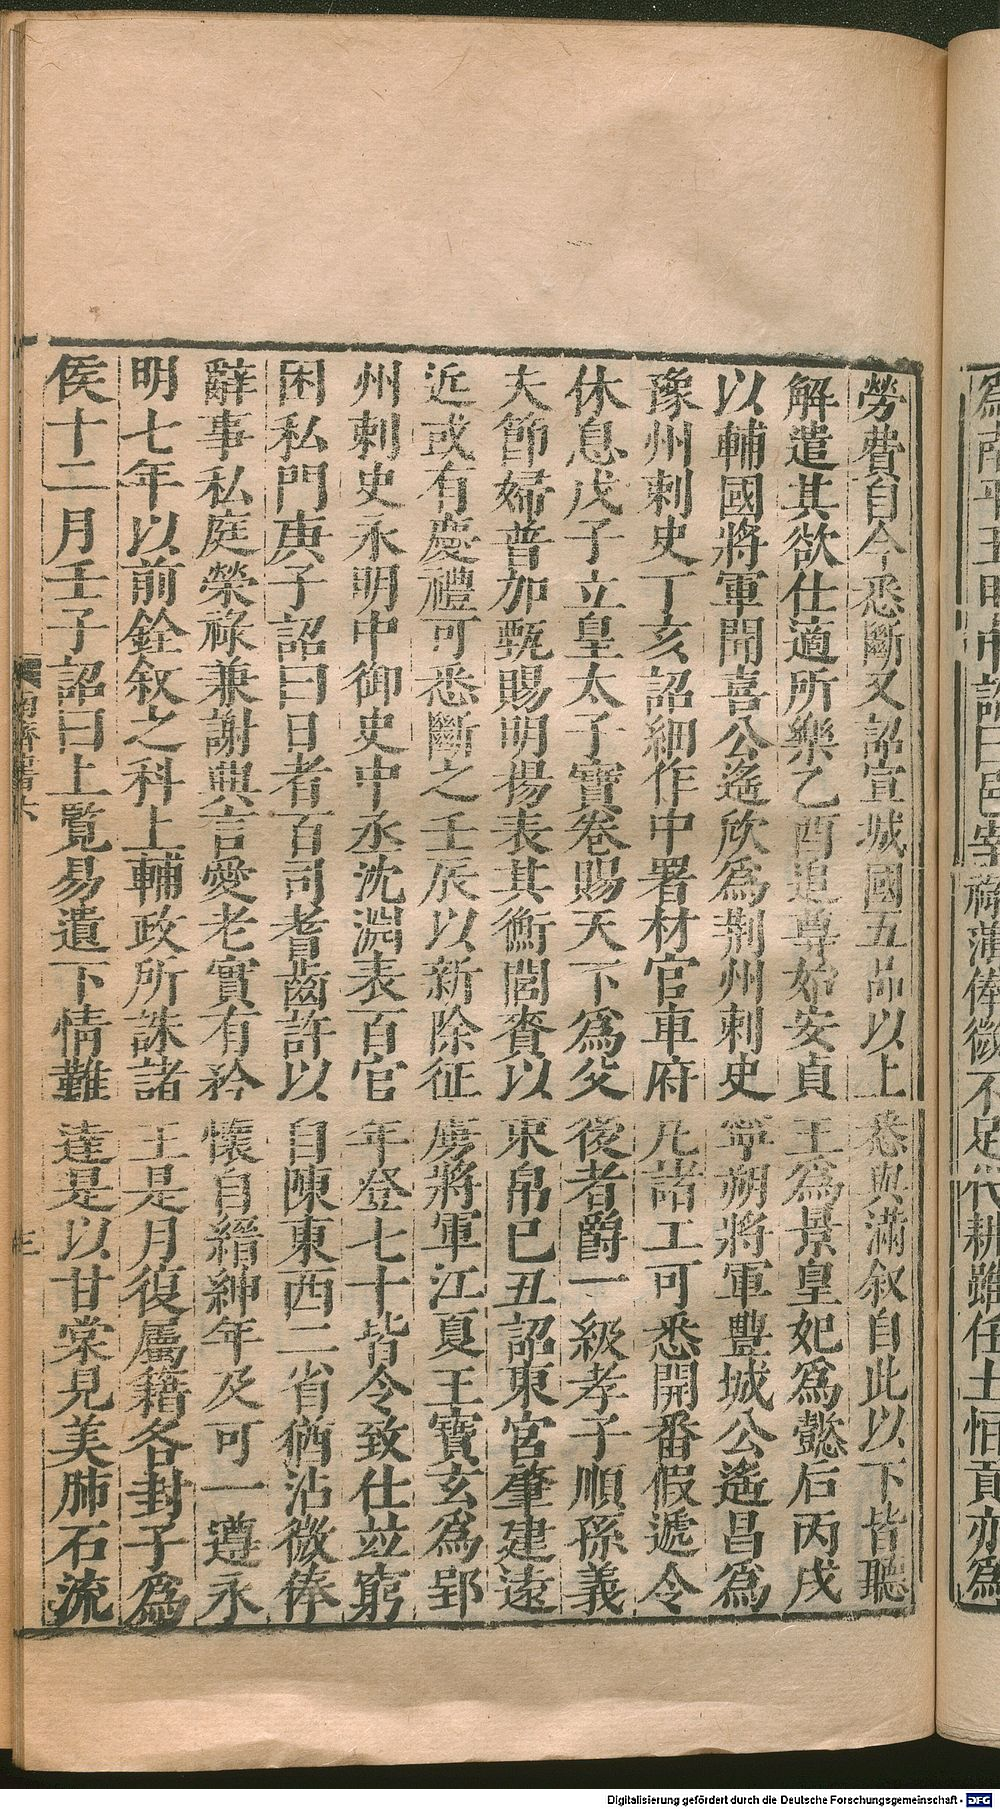 勞費自今悉斷又詔宣城國五品以上悉與滿敘自此以下皆聽
解遣其欲仕適所樂乙酉追尊始安貞王為景皇妃為懿后丙戌
以輔國將軍聞喜公遙欣為荆州刺史寧朔將軍豐城公遙昌為
豫州刺史丁亥詔細作中署材官車府凡諸工可悉開番假遞令
休息戊子立皇太子寶卷賜天下為父後者爵一級孝子順孫義
夫節婦普加甄賜明揚表其衡閭賚以束帛已丑詔東宮肇建遠
近或有慶禮可悉斷之壬辰以新除征虜將軍江夏王寶玄為郢
州刺史永明中御史中丞沈淵表百官年登七十皆令致仕竝窮
困私門庚子詔曰日者百司耆齒許以自陳東西二省猶沾微俸
辭事私庭榮祿兼謝興言愛老實有矜懷自縉紳年及可一遵永
明七年以前銓敘之科上輔政所誅諸王是月復屬籍各封子為
侯十二月壬子詔曰上覽易遺下情難達是以甘棠見美肺石流
南齊書六
三
Digitalisierung gefördert durch die Deutsche Forschungsgemeinschaft - DFG